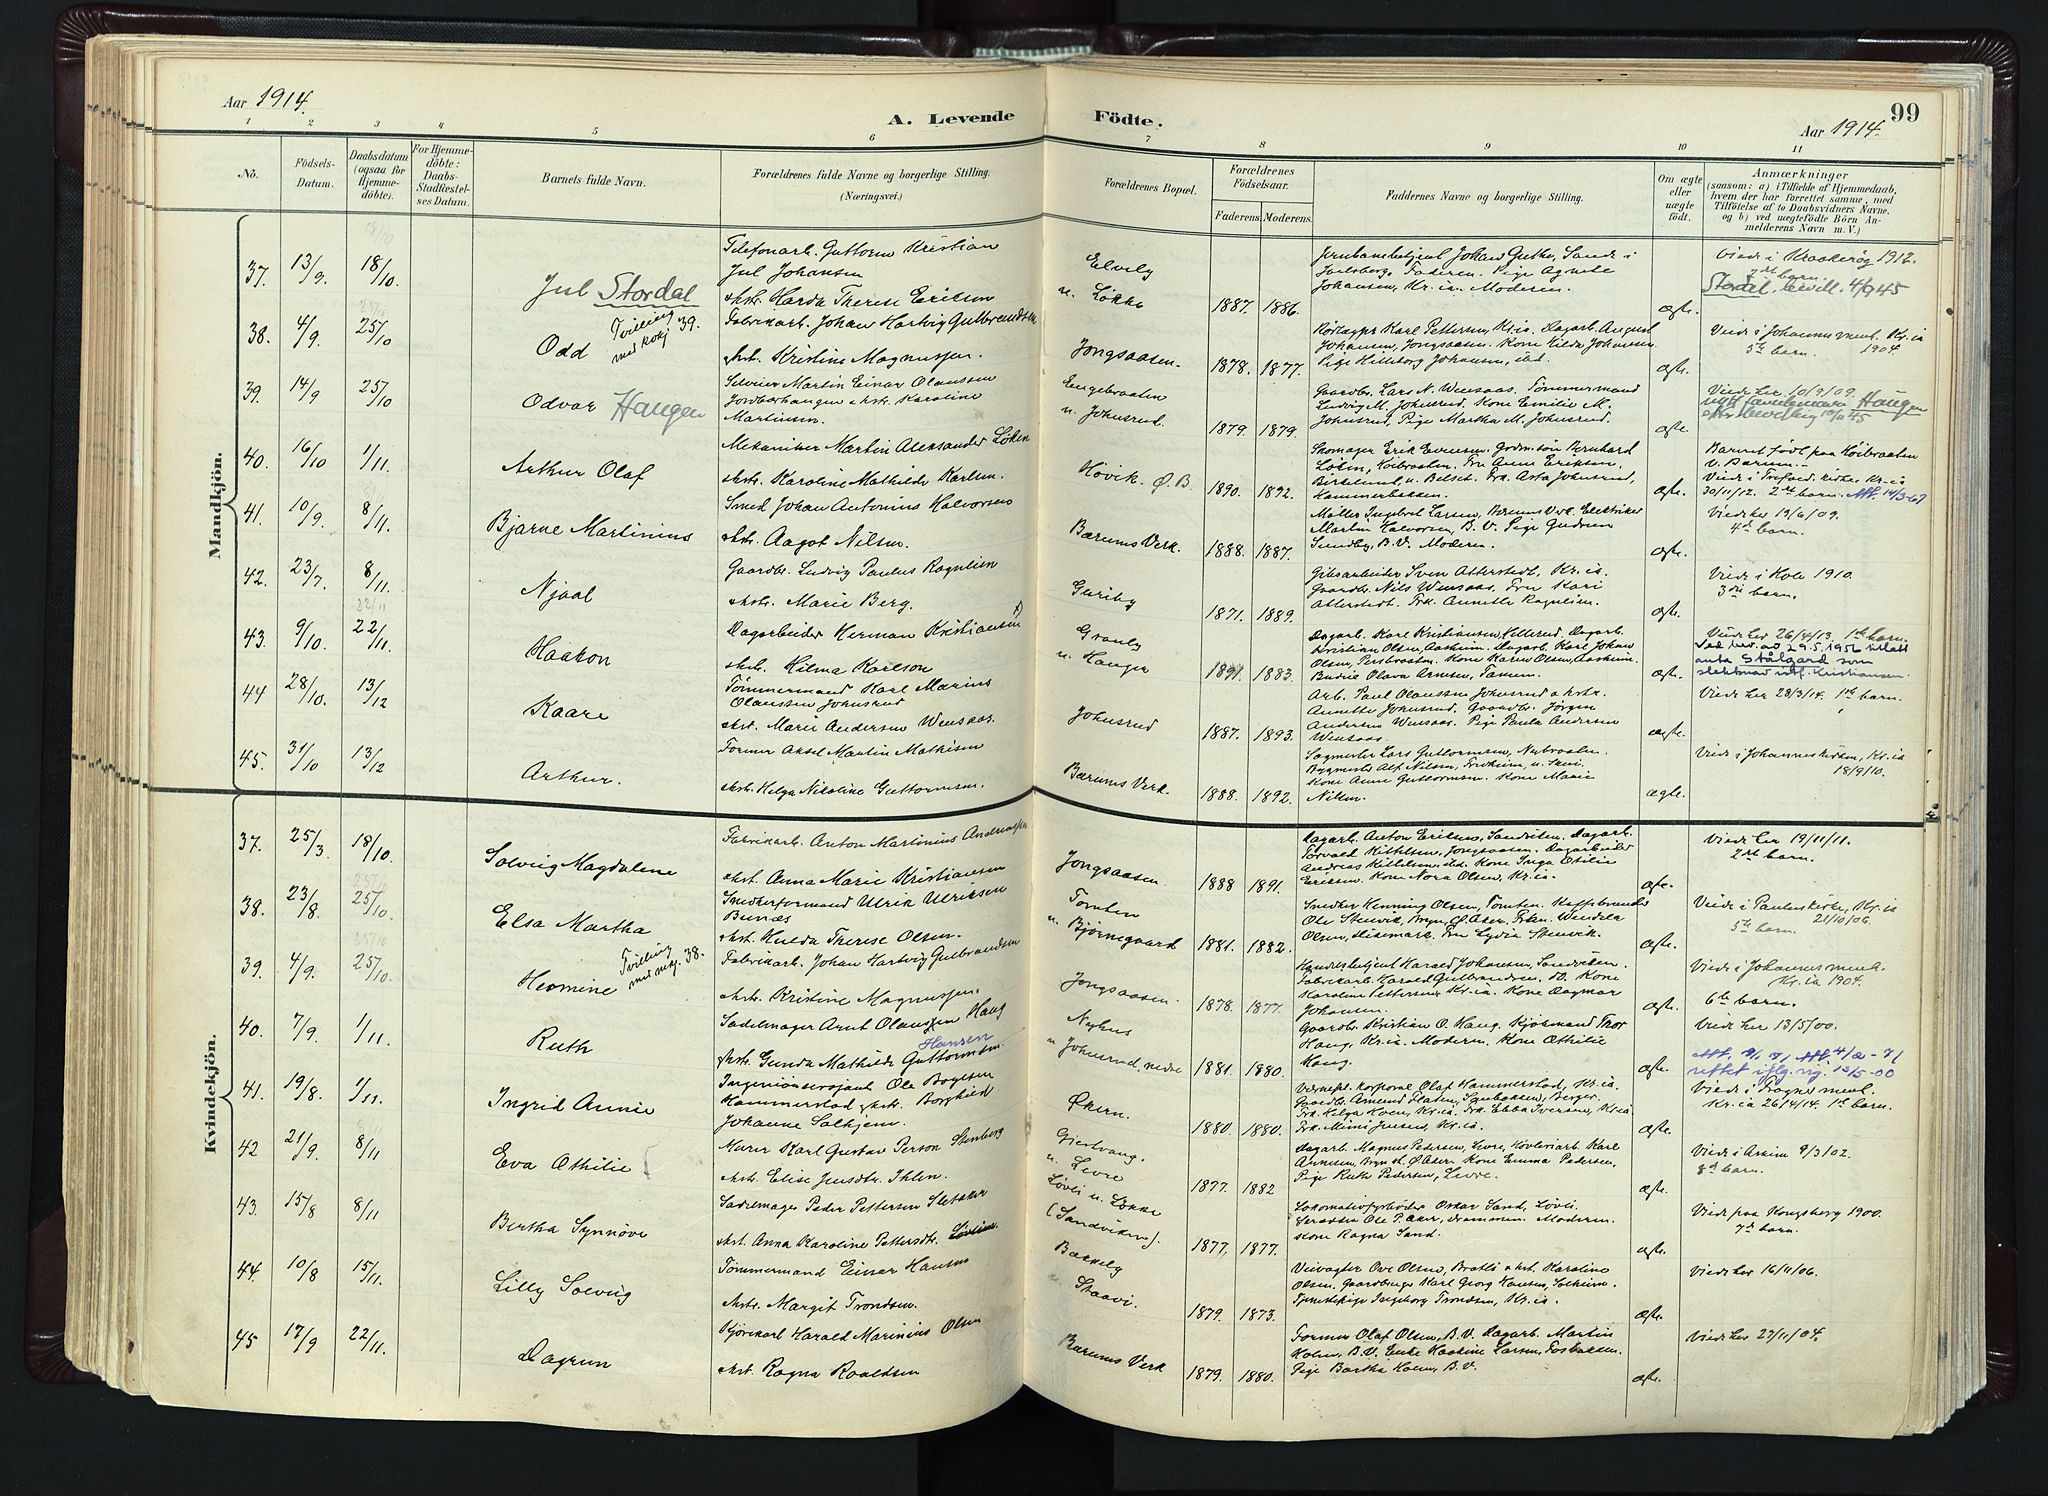 Aar 1914.
A. Levende Födte.
99
Aar 1914.
1 2 3 4 5 6 7 8 9 10 11
No.
Födsels-Datum.
Daabsdatum (ogsaa for Hjemme-döbte).
For Hjemme-döbte: Daabs-Stadfæstel-ses Datum.
Barnets fulde Navn.
Forældrenes fulde Navne og borgerlige Stilling. (Næringsvei.)
Forældrenes Bopæl.
Forældrenes Födselsaar.
Faderens. Moderens.
Faddernes Navne og borgerlige Stilling.
Om ægte eller uægte födt.
Anmærkninger
(saasom: a) i Tilfælde af Hjemmedaab,
hvem der har forrettet samme, med
Tilföielse af to Daabsvidners Navne.
og b) ved uægtefödte Börn An-
melderens Navn m. V.)
Mandkjön.
37. 13/9. 18/10. Jul Stordal
Telefonarb. Guttorm Kristian
Jul Johansen
&hstr. Harda Therese Eriksen
Elvely
u. Løkke
1887. 1886.
Jernbanebetjent Johan Guthu, Sande i
Jarlsberg. Faderen. Pige Agnete
Johansen, Kr.ia. Moderen.
ægte.
Viede i Kraakerøy 1912.
2det barn.
Stordal, bevill. 4/9 45
38. 4/9. 25/10 Odd Tvilling med kvkj 39.
Fabrikarb. Johan Hartvig Gulbrandsen
&hstr. Kristine Magnussen.
Jongsaasen.
1878. 1877.
Karl Pettersen, Kr.ia. Dagarb. August
Johansen, Jongsaasen. Kone Hilda Johansen
Pige Hildborg Johansen, ibd.
ægte.
Viede i Johannes menl. Kr.ia
5te barn. 1904.
39. 14/9 25/10 Odvar Haugen
Martin Einar Olaussen
Jordbærhaugen &hstr. Karoline
Martinsen.
Engebraaten
u. Johnsrud.
1879. 1879.
Gaardbr. Lars N. Wensaas. Tømmermand
Ludvig M. Johnsrud. Kone Emilie M.
Johnsrud, Pige Martha M. Johnsrud.
ægte.
Viede her 10/9/09.
nytt familienavn Haugen
40. 16/10 1/11. Arthur Olaf
Mekaniker Martin Aleksander Løken
&hstr. Karoline Mathilde Karlsen.
Høvik. Ø. B.
1890. 1892.
Skomager Erik Evensen. Bernhard
Løken, Høibraaten. Fru Anne Eriksen,
Birkelund, u. Belset. Frk. Asta Johnsrud,
Kammerbakken.
ægte.
Barnet født paa Høibraaten
V. Bærum.
Viede i Trefold. kirke Kr.ia
30/11/12. 2det barn. Att. 14/3-67
41. 10/9. 8/11. Bjarne Martinius
Smed Johan Antonius Halvorsen
&hstr. Aagot Nilsen.
Bærums Verk.
1888. 1887.
Møller Ingebret Larsen, Bærums Verk. Elektriker
Martin Halvorsen, B. V. Pige Gudrun
Sundby, B. V. Moderen.
ægte.
Viede her 19/6/09.
4de barn.
42. 23/7. 8/11. Njaal
Gaardbr. Ludvig Paulus Rognlien
&hstr. Marie Berg.
Guriby
1871. 1889.
Gibsarbeider Sven Atterstedt, Kr.ia.
Gaardbr. Nils Wensaas. Fru Kari
Atterstedt. Frk. Annette Rognlien.
ægte.
Viede i Hole 1910.
3die barn.
43. 9/10. 22/11. Haakon
Dagarbeider Herman Kristiansen x)
&hstr. Hilma Karlson
Granly
u. Hauger
1891. 1883.
Dagarb. Karl Kristiansen, Hellerud. Dagarb.
Kristian Olsen, Aasheim. Dagarb. Karl Johan
Olsen, Persbraaten. Kone Karen Olsen, Aasheim.
Budeie Olava Arnesen, Tanum.
ægte.
Viede her 26/4/13. 1ste barn.
Ved bev. av 29.5.1956 tillatt
anta Stålgard som
slektsnavn istf. Kristiansen.
44 28/10. 13/12 Kaare
Tømmermand Karl Marius
Olaussen Johnsrud
&hstr. Marie Andersen Wensaas.
Johnsrud
1887. 1893.
Arb. Paul Olaussen Johnsrud & hstr.
Annette Johnsrud. Gaardbr. Jørgen
Andersen Wensaas. Pige Paula Andersen
Wensaas.
ægte.
Viede her 28/3/14. 1ste barn.
45. 31/10 13/12 Arthur.
Former Aksel Martin Mathisen
&hstr. Helga Nikoline Guttormsen.
Bærums Verk.
1888. 1892.
Sagmester Lars Guttormsen, Nybraaten.
Bygmester Alf Nilsen, Fredheim, u. Skui.
Kone Anne Guttormsen. Kone Marie
Nilsen.
ægte.
Viede i Johanneskirken, Kr.ia
18/9/10.
Kvindekjön.
37. 25/3. 18/10. Solveig Magdalene
Fabrikarb. Anton Martinius Andreassen
&hstr. Anna Marie Kristiansen
Jongsaasen.
1888 1891.
Dagarb. Anton Eriksen, Sandviken. Dagarb.
Torvald Kittelsen, Jongsaasen. Dagarbeider
Andreas Kittelsen, ibd. Kone Inga Othilie
Eriksen. Kone Nora Olsen, Kr.ia.
ægte.
Viede her 19/11/11.
2det barn.
38. 23/8. 25/10. Elsa Martha
Snedkerformand Ulrik Ulriksen
Bunæs
&hstr. Hulda Therese Olsen.
Tomten
u. Bjørnegaard
1881. 1882.
Snedker Henning Olsen, Tomten.
Ole Stenvik, Bryn, Ø. Aker. Frk. Wendela
Olsen, Fru Lydia Stenvik.
ægte.
Viede i Pauluskirke, Kr.ia
21/10/06.
5te barn.
39. 4/9. 25/10. Hermine Tvilling med mkj. 38.
Fabrikarb. Johan Hartvig Gulbrandsen
&hstr. Kristine Magnussen.
Jongsaasen.
1878. 1877.
Handelsbetjent Harald Johansen, Sandviken.
Fabrikarb. Harald Gulbrandsen, do. Kone
Karoline Pettersen, Kr.ia. Kone Dagmar
Johansen.
ægte.
Viede i Johannes menh.
Kr.ia 1904.
6te barn.
40. 7/9. 1/11. Ruth
Sadelmager Arnt Olaussen Haug
Hansen
&hstr. Gunda Mathilde Guttormsen.
Nyhus
u. Johnsrud, nedre
1881. 1880.
Gaardbr. Kristian O. Haug. Thor
Haug, Kr.ia. Moderen. Kone Othilie
Haug.
ægte.
Viede her 13/5/00.
rettet iflg. vig. 13/5-00
41. 19/8. 1/11. Ingrid Annie
Ingeniør Ole Boglsen
Hammerstad &hstr. Borghild
Johanne Solhjem.
Økern.
1880. 1880.
Vernepl. korporal Olaf Hammerstad, Kr.ia.
Gaardbr. Amund Fladen, Berger.
Frk. Helga Hoen, Kr.ia. Frk. Ebba Iversen, Kr.ia
Frk. Mimi Jensen, Kr.ia.
ægte.
Viede i Frogner menl.
Kr.ia 26/4/14. 1ste barn.
42 21/9. 8/11 Eva Othilie
Murer Karl Gustav Person Stenberg
&hstr. Elise Ihlen.
Gjertvang.
u. Levre
1877. 1882
Dagarb. Magnus Pedersen, Levre, Høvleriarb. Karl
Arnesen, Bryn st. Ø. Aker. Kone Emma Pedersen,
Pige Ruth Pedersen, Levre.
ægte.
Viede i Askim 9/3/02.
8de barn.
43. 15/8 8/11 Bertha Synnøve
Sadelmager Peder Pettersen
&hstr. Anna Karoline Pettersdtr.
Løvli u. Løkke
(Sandviken).
1877. 1877.
Lokomotivfyrbøder Oskar Sand, Løvli.
Ole P. Aker, Drammen. Moderen.
Kone Ragna Sand.
ægte.
Viede paa Kongsberg 1900.
7de barn.
44. 10/8 15/11. Lilly Solveig
Tømmermand Einar Hansen
&hstr. Margit Trondsen.
Bakkely
u. Staavi.
1879. 1873.
Veivogter Ove Olsen, Bratli & hstr. Karoline
Olsen. Gaardbruger Karl Georg Hansen, Solheim.
Tjenestepige Ingeborg Trondsen, Kr.ia.
ægte.
Viede her 16/11/06.
45 17/9 22/11. Dagrun
Kjørekarl Harald Marinius Olsen
&hst. Ragna Roaldsen
Bærums Verk
1879. 1880.
Former Olaf Olsen, B. V. Dagarb. Martin
Holm, B. V. Enke Haakine Larsen, Fosbakken.
Pige Bartha Holm, B. V.
ægte.
Viede her 27/11/04.